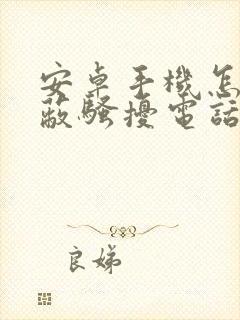 安卓手機怎
蔽騷擾電話
良娣